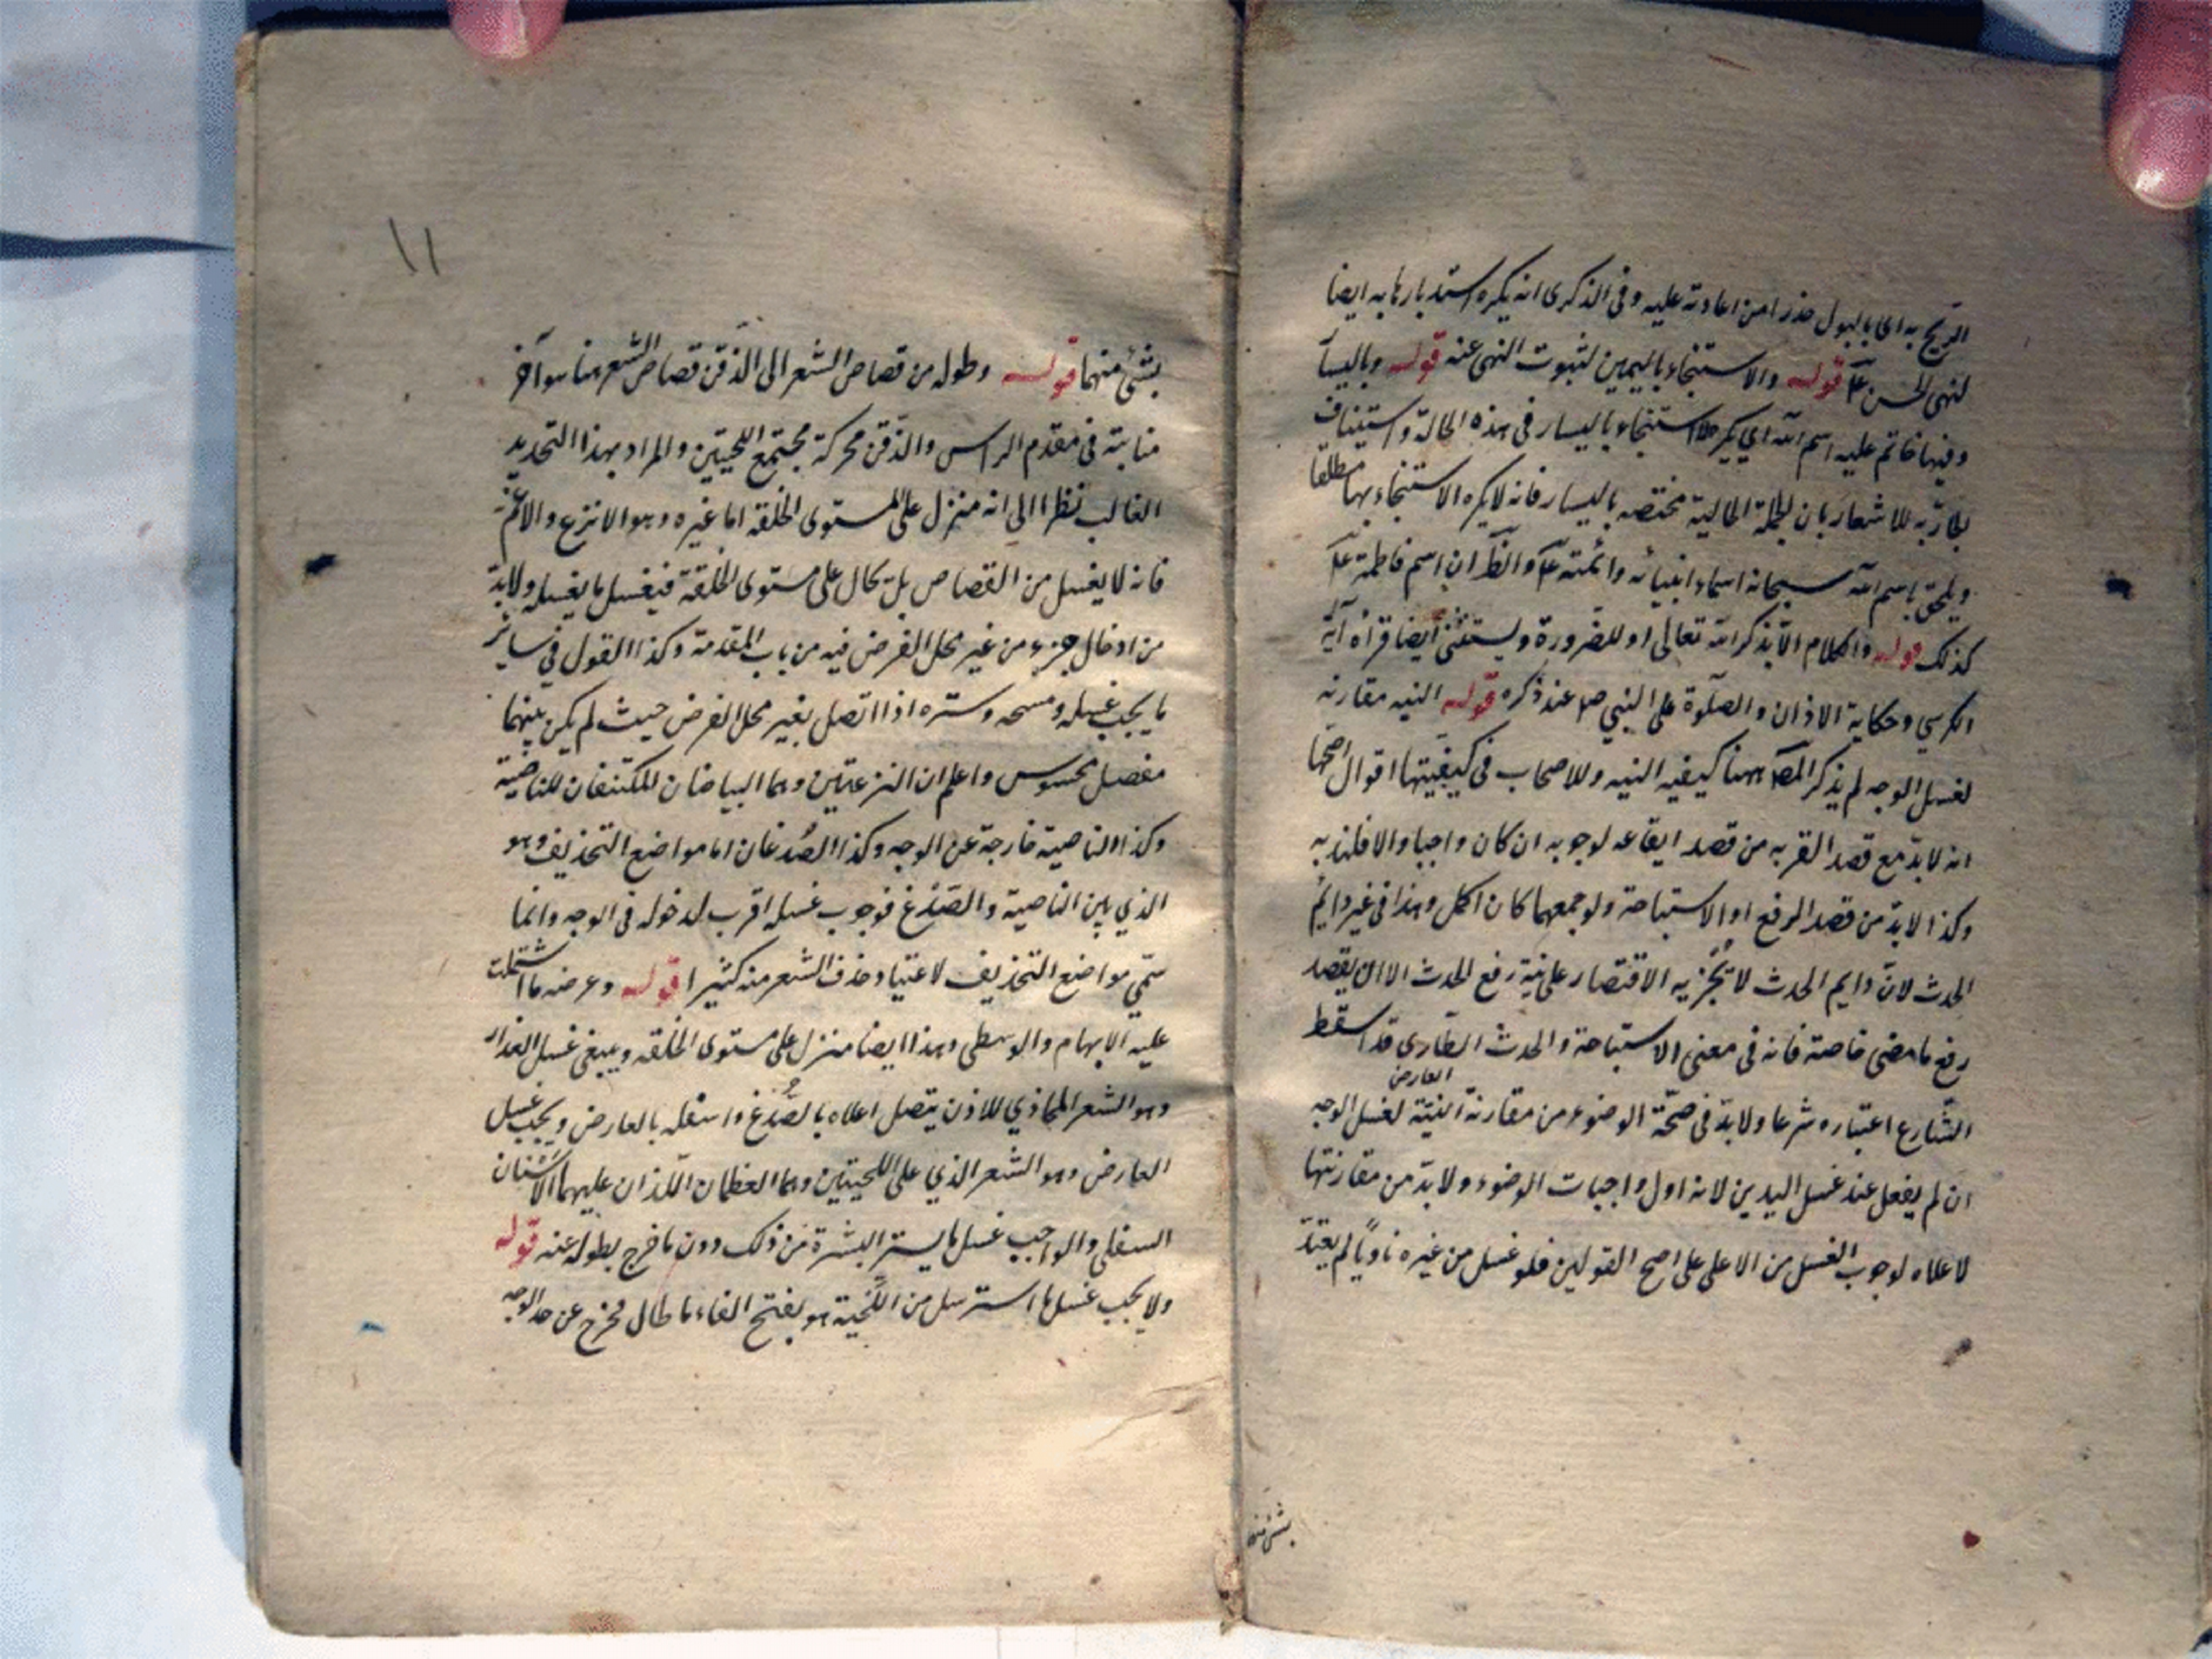 الريح به اى بالبول حذرا من اعادته عليه وفى الذكرى انه يكره استدبارها به ايضا
لنهى الحسن ع قوله والاستنجاء باليمين لثبوت النهى عنه قوله وباليسار
وفيها خاتم عليه اسم الله اى يكره الاستنجاء باليسار فى هذه الحالة واستيناف
للاشعار بان الجملة الحالية مختصه باليسار فانه لا يكره الاستنجاء بها مطلقا
ويلحق باسم الله سبحانه اسماء انبيائه وائمته ع والظ ان اسم فاطمة ع
كذلك قوله والكلام الا بذكر الله تعالى او للضرورة ويستثنى ايضا قراءة آية
الكرسي وحكاية الاذان والصلوة على النبي ص عند ذكره قوله النيه مقارنه
لغسل الوجه لم يذكر المص ههنا كيفيه النيه وللاصحاب فى كيفيتها اقوال اصحها
انه لابد مع قصد القربه من قصد ايقاعه لوجوبه ان كان واجبا والا فلندبه
وكذا لابد من قصد الرفع او الاستباحة ولو جمعهما كان اكمل وهذا فى غير دايم
الحدث لان دايم الحدث لا يجزيه الاقتصار على نية رفع الحدث الا ان يقصد
رفع ما مضى خاصة فانه فى معنى الاستباحة والحدث الطارى قد اسقط
العارض
الشارع اعتباره شرعا ولابد فى صحة الوضوء من مقارنة النية لغسل الوجه
ان لم يفعل عند غسل اليدين لانه اول واجبات الوضوء ولابد من مقارنتها
لاعلاه لوجوب الغسل من الاعلى على اصح القولين فلو غسل من غيره ناويا لم يعتد
بشئ منها
١١
بشئ منها قوله وطوله من قصاص الشعر الى الذقن قصاص الشعر هنا هو آخر
منابته فى مقدم الراس والذقن محركة مجتمع اللحيتين والمراد بهذا التحديد
الغالب نظرا الى انه منزل على المستوى الخلقه اما غيره وهو الانزع والاغم
فانه لا يغسل من القصاص بل يحال على مستوى الخلقة فيغسل ما يغسله ولابد
من ادخال جزء من غير محل الفرض فيه من باب المقدمة وكذا القول في ساير
ما يجب غسله ومسحه وستره اذا اتصل بغير محل الفرض حيث لم يكن بينهما
مفصل محسوس واعلم ان النزعتين وهما البياضان المكتنفان للناصية
وكذا الناصية خارجة عن الوجه وكذا الصدغان اما مواضع التحذيف وهو
الذي بين الناصية والصدغ فوجوب غسله اقرب لدخوله فى الوجه وانما
سمي مواضع التحذيف لاعتياد حذف الشعر منه كثيرا قوله وعرضه ما اشتملت
عليه الابهام والوسطى وهذا ايضا منزل على مستوى الخلقه وينبغى غسل العذار
وهو الشعر المحاذي للاذن يتصل اعلاه بالصدغ واسفله بالعارض ويجب غسل
العارض وهو الشعر الذي على اللحيتين وهما العظمان اللذان عليهما الاسنان
السفلى والواجب غسل ما يستر البشرة من ذلك دون ما خرج بطوله عنه قوله
ولا يجب غسل ما استرسل من اللحية هو بفتح الفاء ما طال فخرج عن حد الوجه